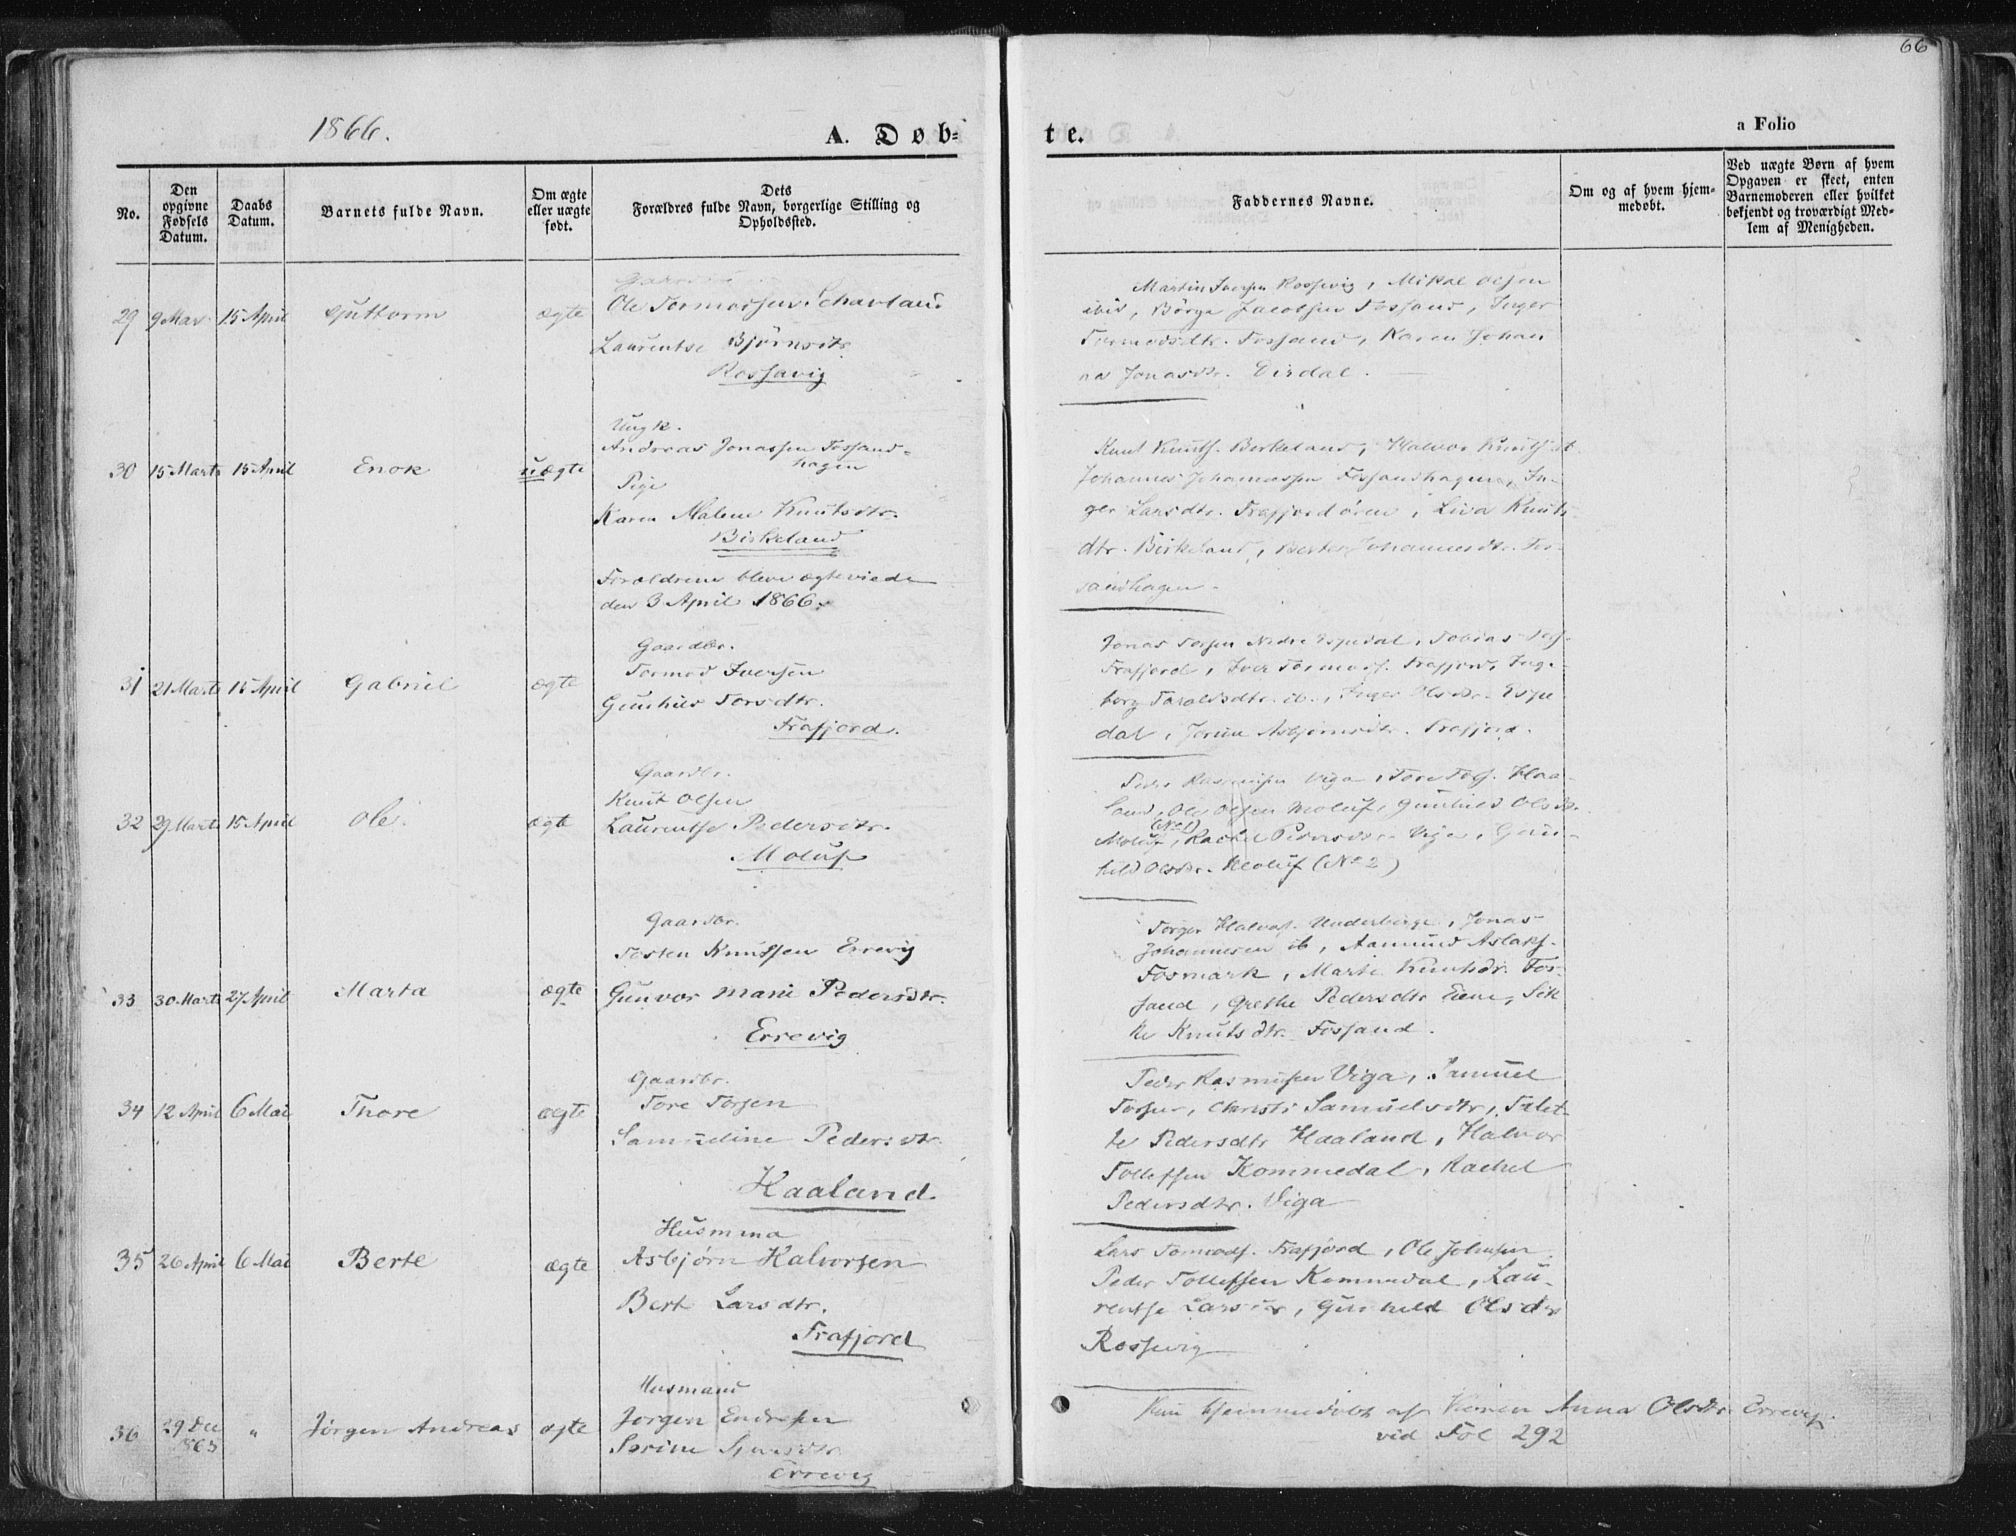 66
1866.
A. Døb=
te.
a Folio
No.
Den opgivne Fødsels Datum.
Daabs Datum.
Barnets fulde Navn.
Om ægte eller uægte født.
Dets Forældres fulde Navn, borgerlige Stilling og Opholdssted.
Faddernes Navne.
Om og af hvem hjemmedøbt.
Ved uægte Børn af hvem Opgaven er skeet, enten Barnemoderen eller hvilket bekjendt og troværdigt Medlem af Menigheden.
29 9 Mar 15 April Guttorm ægte
Ole Tormodsen
Laurentse Bjørnsdtr.
Rossavig
Martin Iversen Rossevig, Mikal Olsen
ibid, Børge Jacobsen Fossand, Inger
Tormodsdtr. Fossand, Karen Johan
na Jonasdtr. Dirdal.
30 15 Marts 15 April Enok uægte
Ungk.
Andreas Jonassen Fossand-
hagen
Pige
Karen Malene Knutsdtr.
Birkeland
Forældrene bleve ægteviede
den 3 April 1866.
Knut Knuts. Birkeland, Halvor
Johannes Johannessen Fossandhagen, In-
ger Larsdtr. Frafjordøren, Liva Knuts
dtr. Birkeland, Johannesdtr. Fos-
sandhagen.
31 21 Marts 15 April Gabriel ægte
Gaardbr.
Tormod Iversen
Gunhild Torsdtr.
Frafjord.
Jonas Nedre Espedal, Tobias
Frafjord, Iver Tormods. Frafjord, Inge-
borg Taraldsdtr. ib., Inger Olsdtr. Espe
dal, Jorun Asbjørnsdtr. Frafjord.
32 29 Marts 15 April Ole. ægte
Gaardbr.
Knut Olsen
Laurentse Pedersdtr.
Moluf
Peder Rasmussen Viga, Tore Tors. Haa-
land, Ole Olsen Moluf, Gunhild Olsdtr.
Moluf (No 1), Rachel Pedersdtr. Viga, Gun-
hild Olsdtr. Moluf (No 2)
33 30 Marts 27 April Marta ægte
Gaardbr.
Tosten Knutsen Errevig
Gunvor Marie Pedersdtr.
Errevig
Torger Halvors. Underberge, Jonas
Johannesen ib, Aamund Aslaks.
Fosmark, Marte Knutsdtr. Fos-
sand, Grethe Pedersdtr Eiene, Sik
ke Knutsdtr. Fossand.
34 12 April 6 Mai Thore ægte
Gaardbr.
Tore Torsen
Samueline Pedersdtr.
Haaland
Peder Rasmussen Viga, Samuel
Torsen, Christi Samuelsdtr, Talet-
te Pedersdtr Haaland, Halvor
Tollefsen Kommedal, Rachel
Pedersdtr. Viga
35 26 April 6 Mai Berte ægte
Husmand
Asbjørn Halvorsen
Berte Larsdtr.
Frafjord
Lars Tormods. Frafjord, Ole Johnsen
Peder Tollefsen Kommedal, Lau-
rentse Larsdtr, Gunhild Olsdtr
Rossevig
36 29 Dec 1865 " Jørgen Andreas ægte
Husmand
Jørgen Endresen
Serine
Errevig
Kun hjemmedøbt af Karen Anna Olsdtr. Errevig.
vid Fol 292